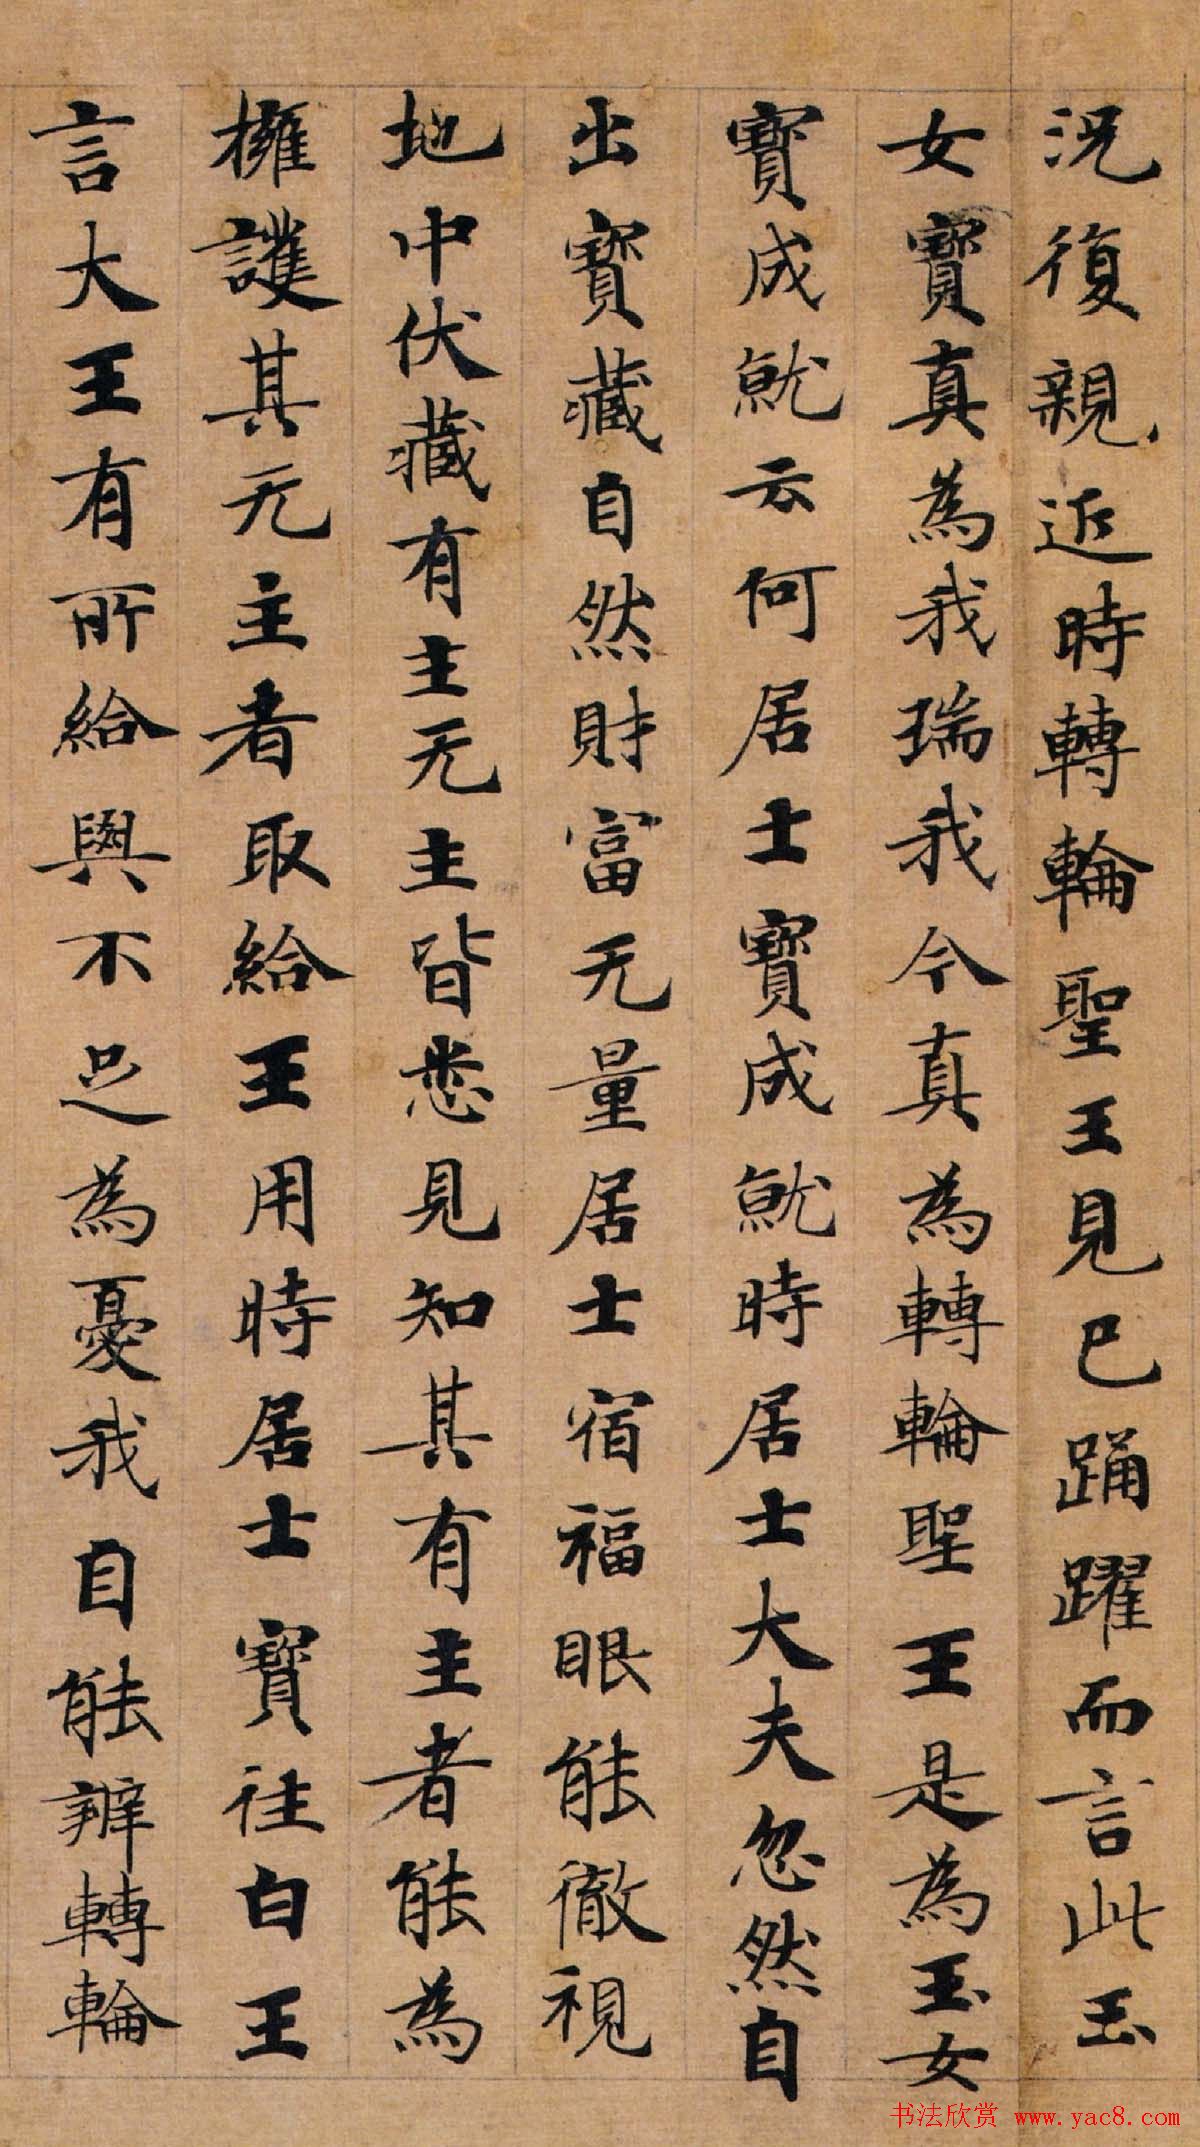 況復親近時轉輪聖王見已踊躍而言此玉
女寶真為我瑞我今真為轉輪聖王是為玉女
寶成就云何居士寶成就時居士大夫忽然自
出寶藏自然財富无量居士宿福眼能徹視
地中伏藏有主无主皆悉見知其有主者能為
擁護其无主者取給王用時居士寶往白王
言大王有所給與不足為憂我自能辦轉輪
书法欣赏 www.yac8.com